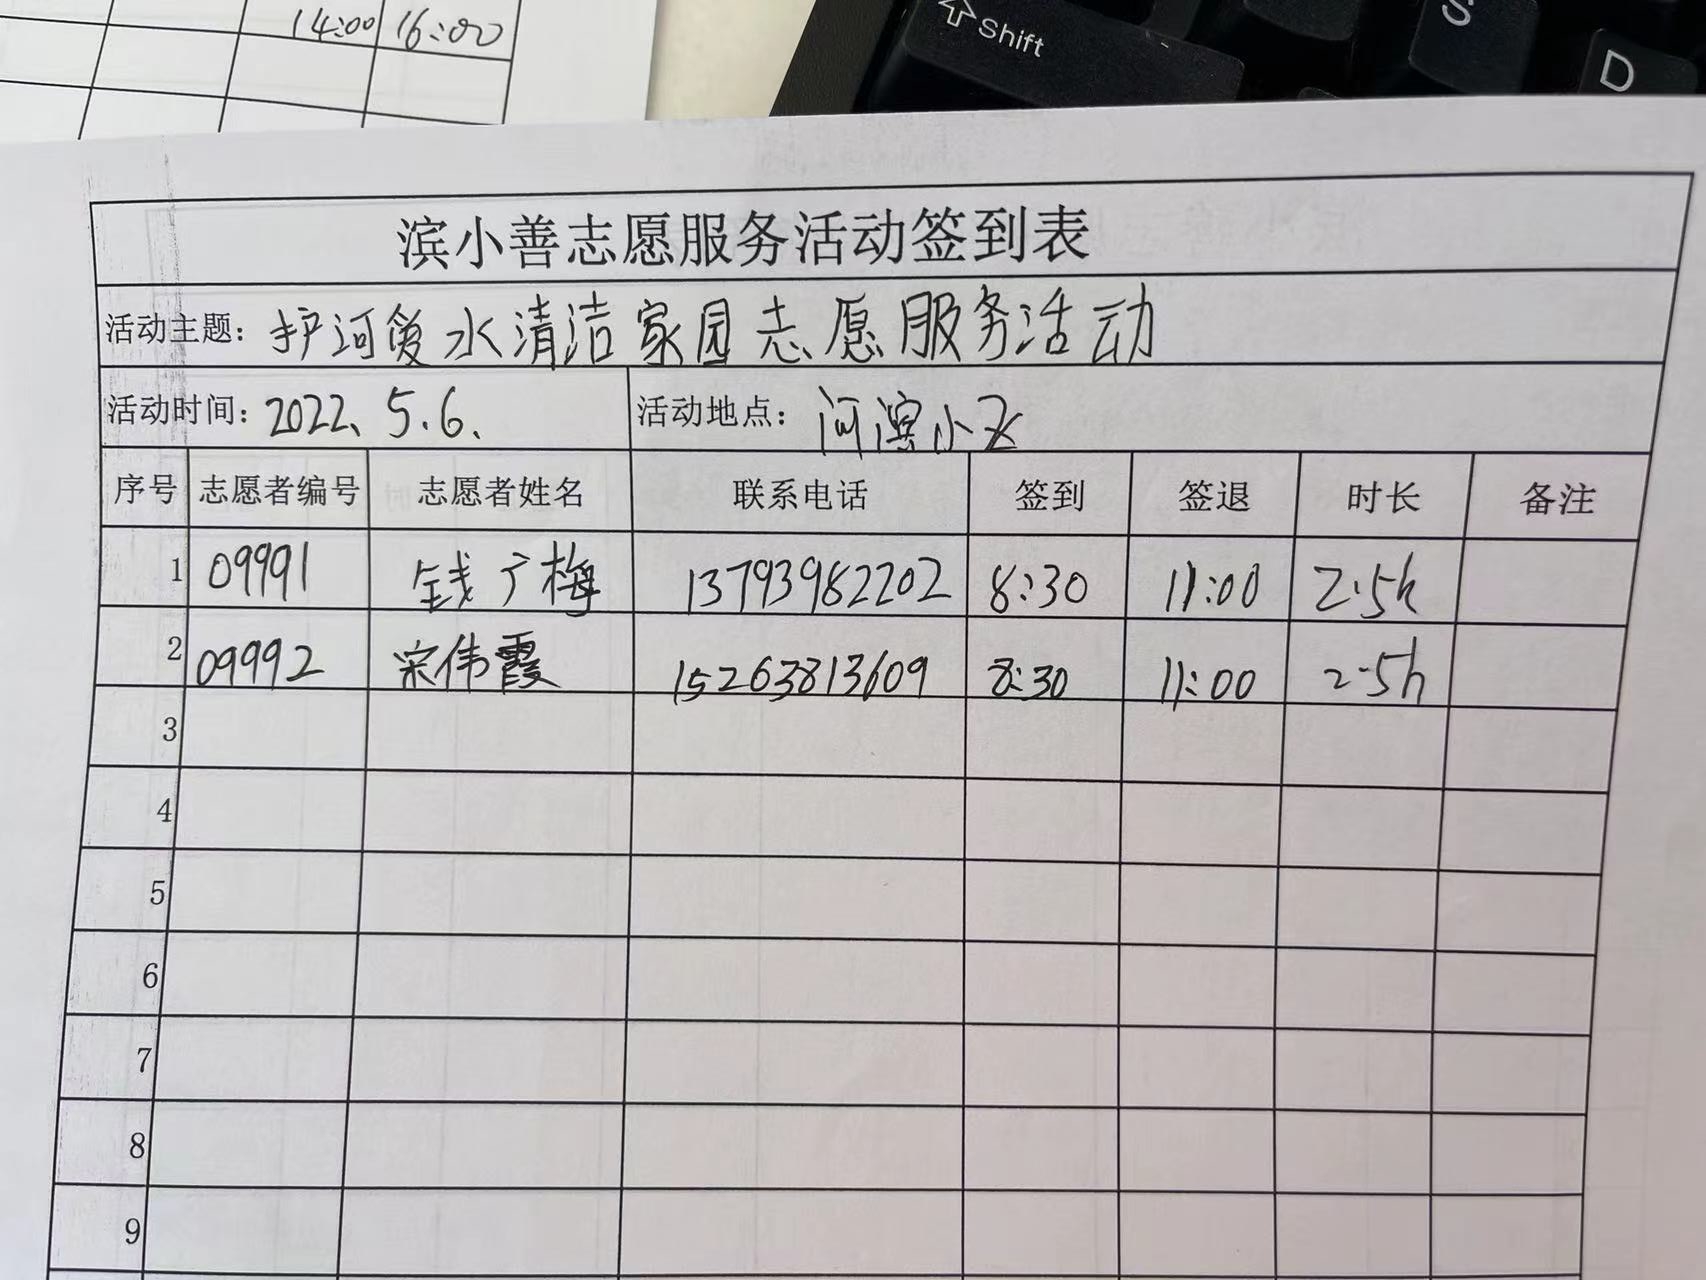 14:00 16:00
Shift
S
D
滨小善志愿服务活动签到表
活动主题: 护河爱水清洁家园志愿服务活动
活动时间: 2022、5.6、 活动地点: 河滨小区
序号 志愿者编号 志愿者姓名 联系电话 签到 签退 时长 备注
1 09991 钱广梅 13793982202 8:30 11:00 2.5h
2 09992 宋伟霞 15263813609 8:30 11:00 2.5h
3
4
5
6
7
8
9